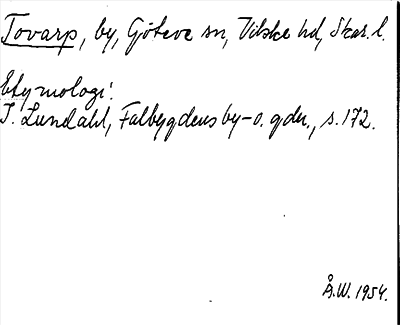 Tovarp, by, Göteve sn, Vilske hd, Skar. l.
Etymologi:
I. Lundahl, Falbygdens by- o. gdn., s. 172.
Å.W. 1954.